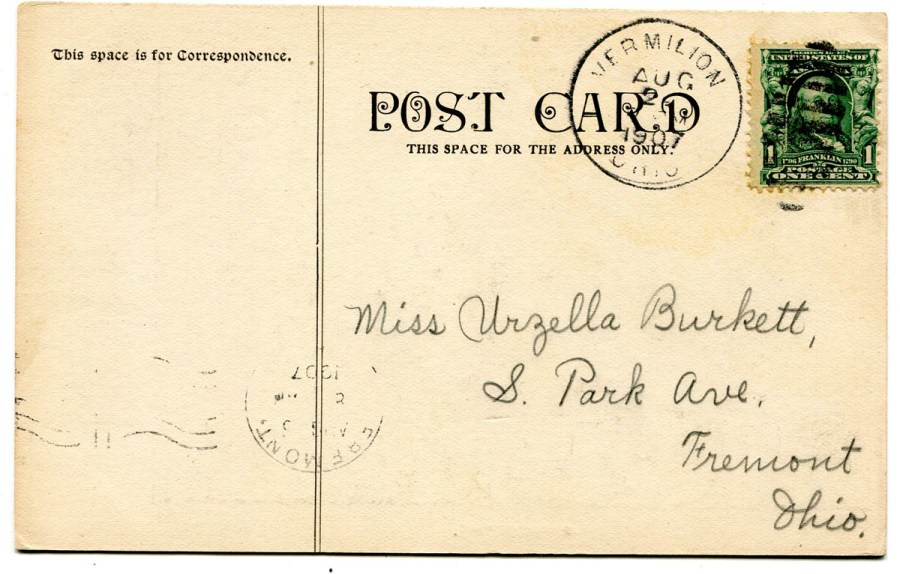 This space is for Correspondence.
POST CARD
THIS SPACE FOR THE ADDRESS ONLY.
VERMILION
AUG
1907
OHIO
SERIES 1902
UNITED STATES OF
1 1706 FRANKLIN 1790 1
POSTAGE
ONE CENT
Miss Urzella Burkett,
S. Park Ave.
Fremont
Ohio.
FREMONT.
1907